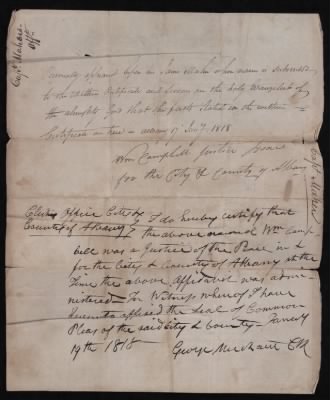 Capt Mahers
Affts
Personally appeared before me James Maher whose name is subscribed
to the within Certificate and Sworn on the holy Evangelist of
the almighty God that the facts stated in the within
Certificate are true – Albany 17 Jany 1818
Wm Campbell Justice Peace
for the City & County of Albany
Capt Mahers
Clerks Office City &
County of Albany } I do hereby certify that
the above named Wm Camp
bell was a Justice of the Peace in &
for the City & County of Albany at the
time the above affidavit was admin
istered – In Witness whereof I have
hereunto affixed the Seal of Common
Pleas of the said city & county – January
19th 1818
George Merchant Clk